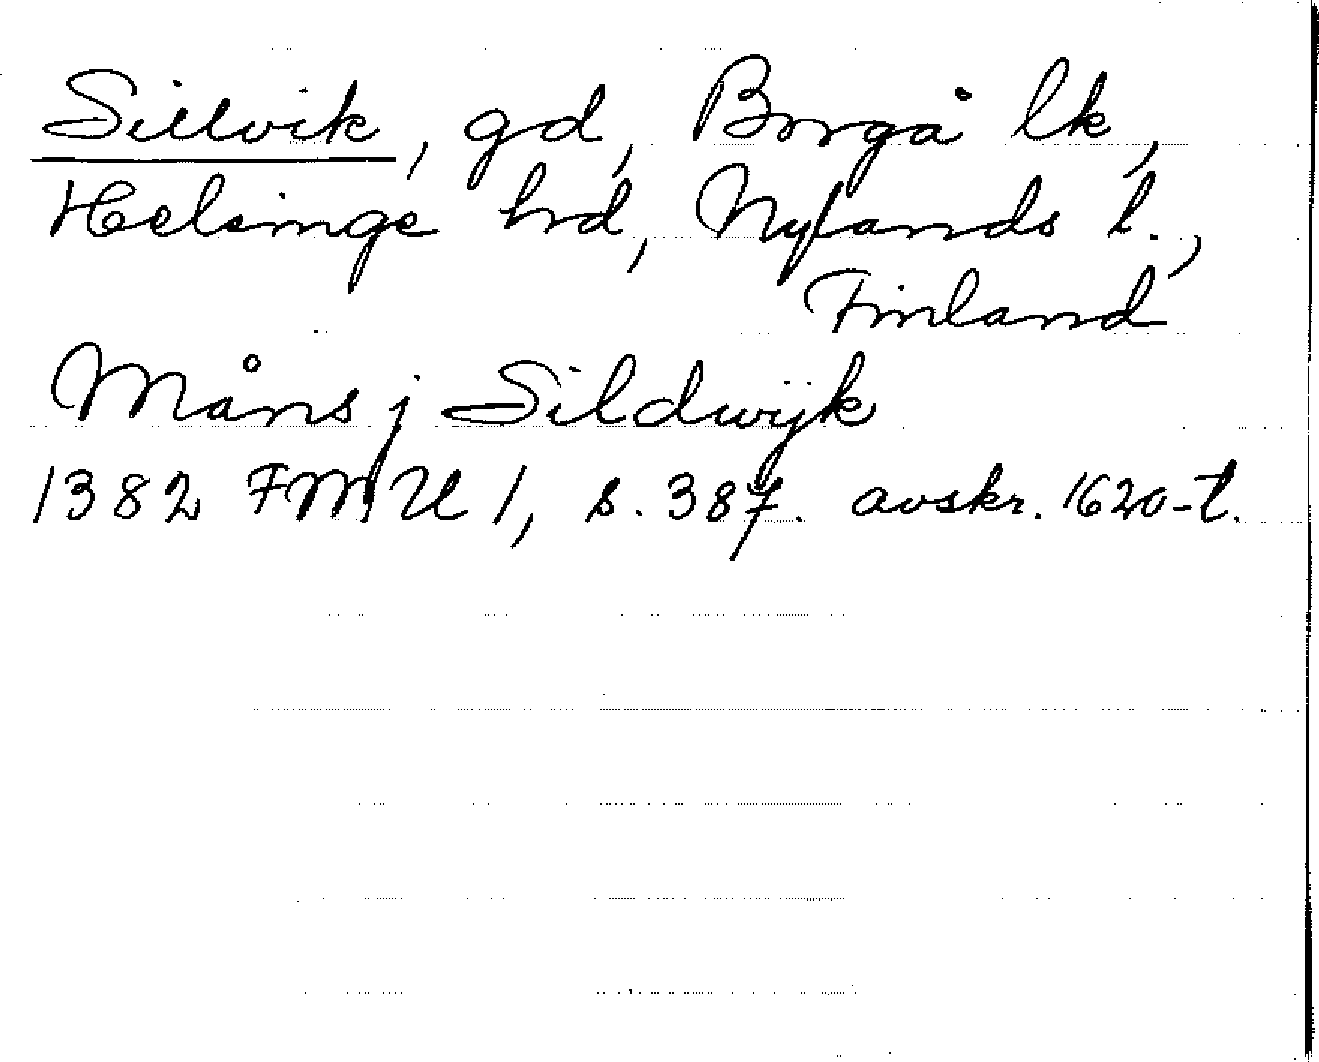 Sillvik, gd, Borgå lk,
Helsinge hrd, Nylands l.,
Finland
Måns j Sildwijk
1382 FMU 1, s. 387. avskr. 1620-t.